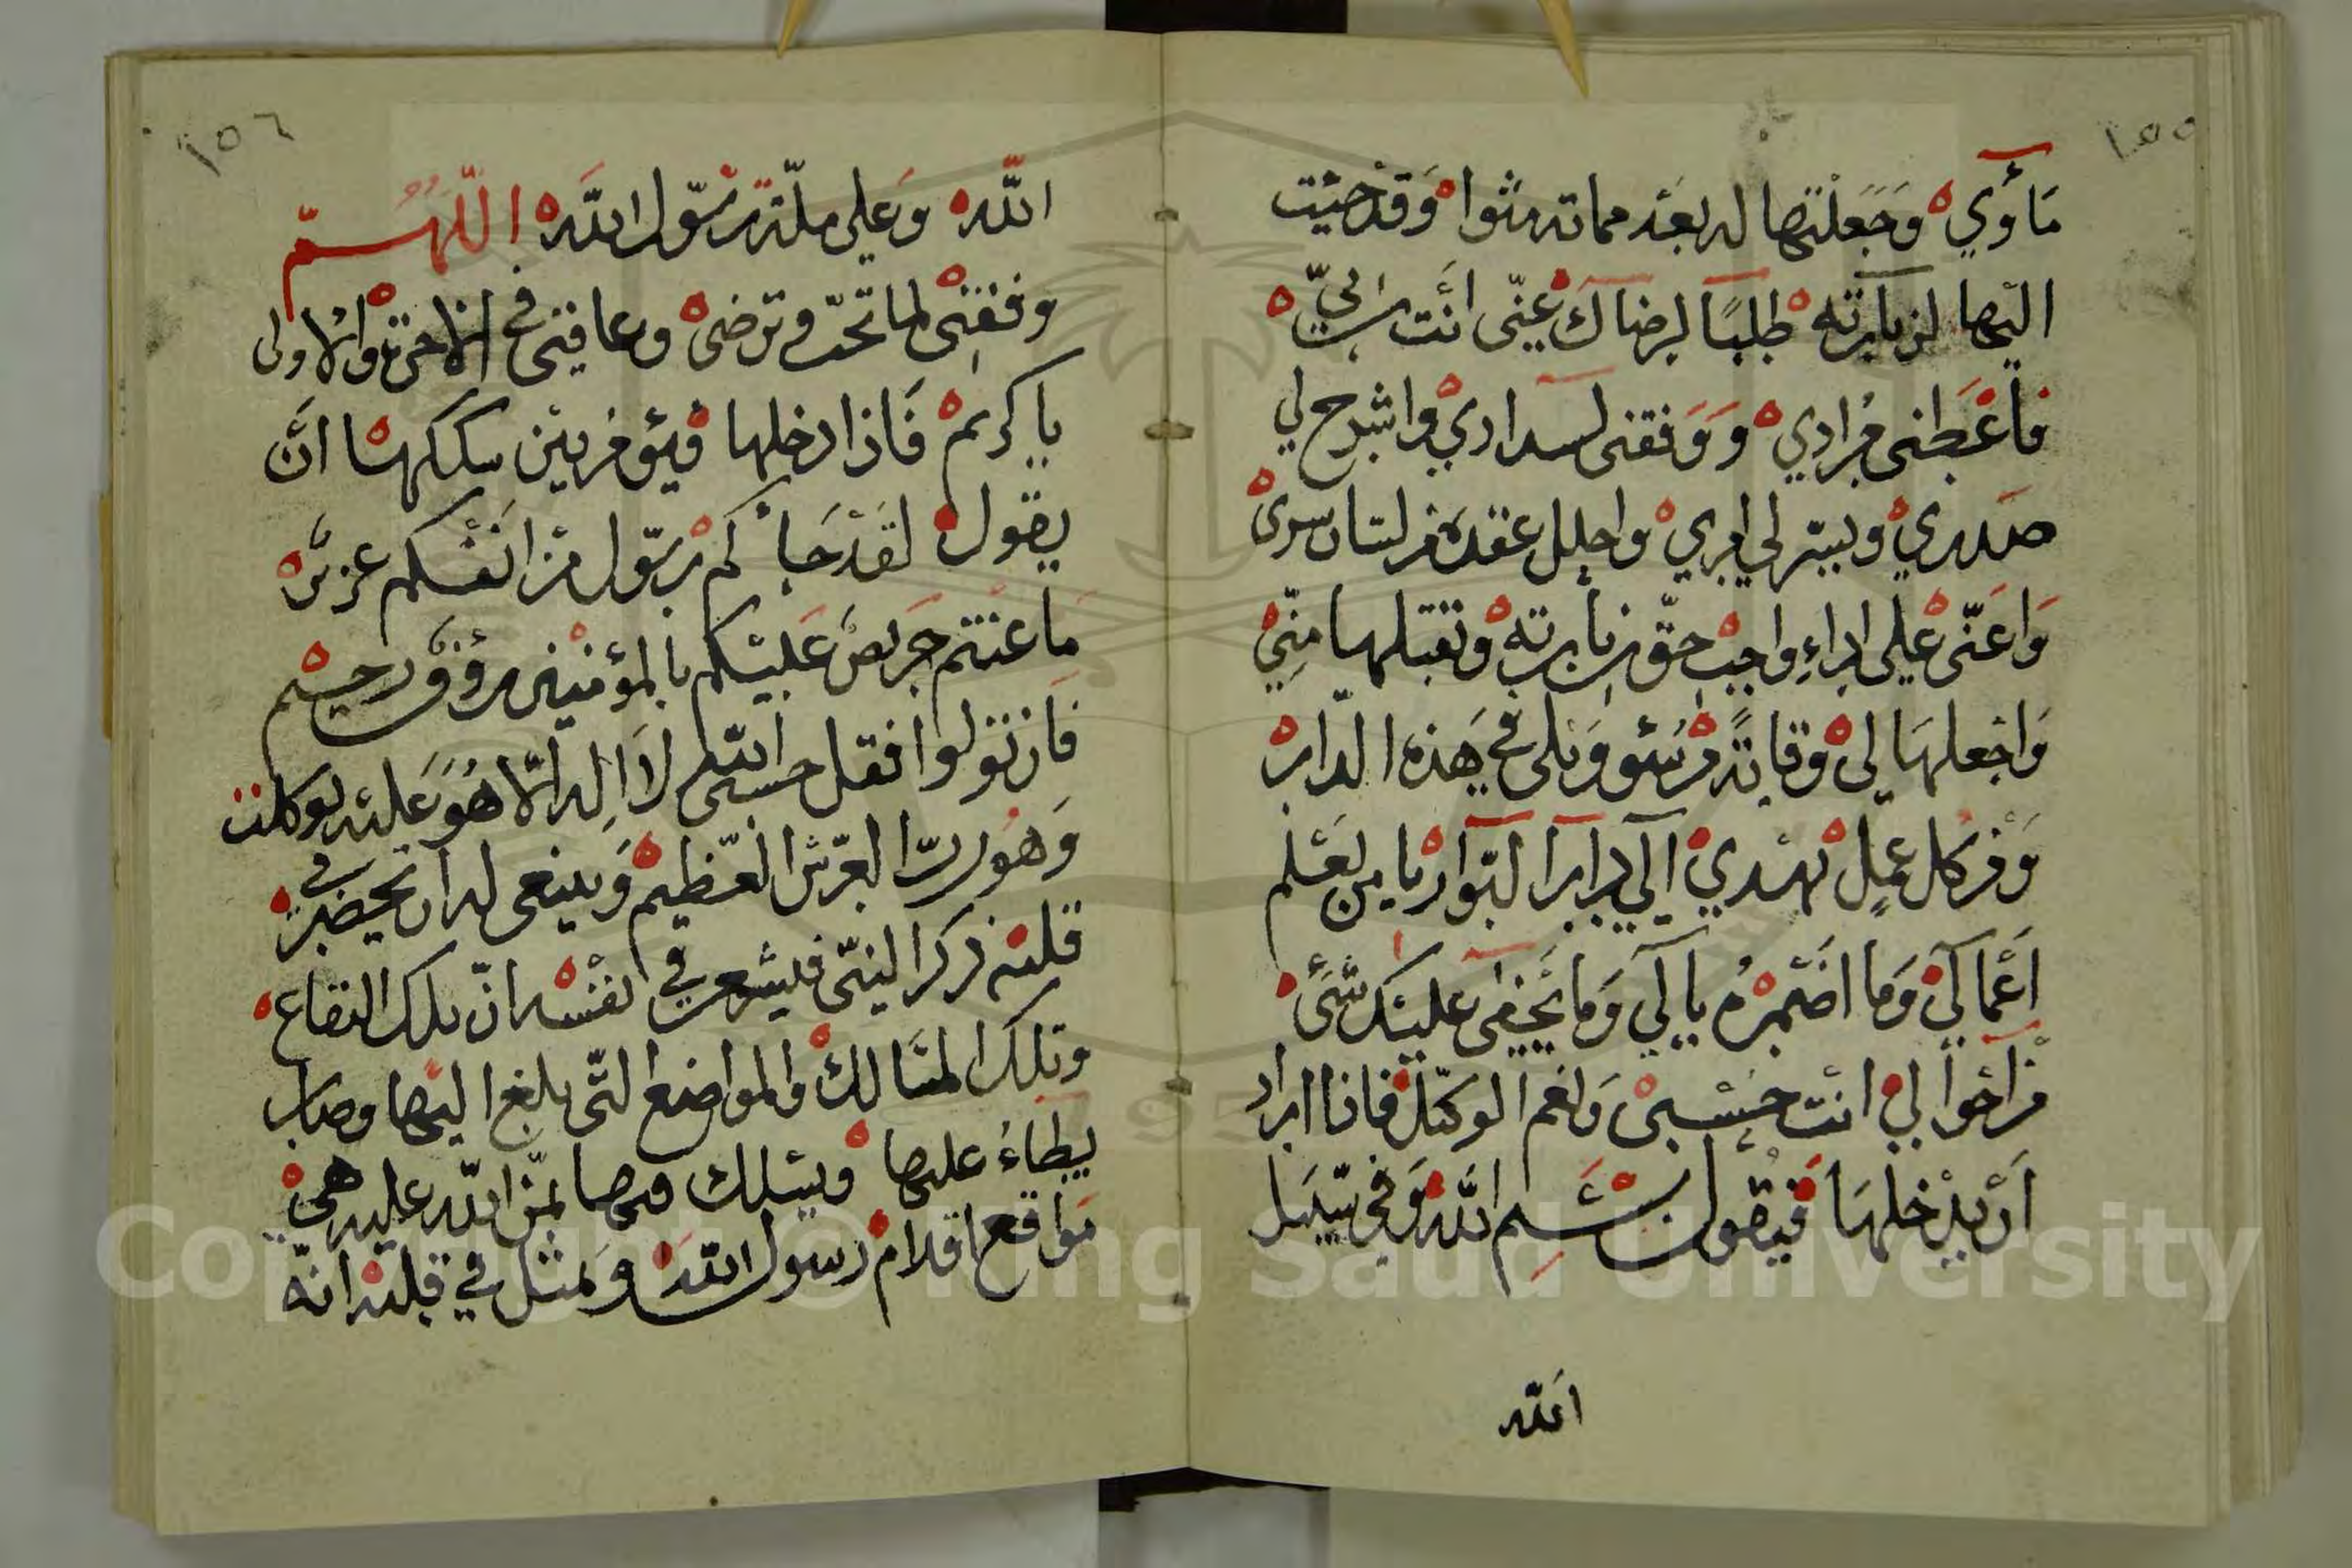 ١٥٥
مَأوي وَجَعَلْتَها له بعَد مماته مثوا وَقدْ جئت
اليْها لزيارته طلبًا لرضاك عنّى أنت ربيّ
فأعْطنى مُرادي وَوَفقنى لسدادي واشرح لي
صَدري ويسّر لي امري واحلل عقدة من لسان سرى
وَاعَنّى على اداءِ واجب حقّ زيارته وتقبلها منّي
وَاجْعلهَا لى وقايةً من سُوء وَبلى في هَذه الدّار
وَمن كل عملٍ يهْدي إلى دار البَوار يا من يَعْلم
اَعْمالي وَما اضْمرهُ يا لي وَما يَخفى عليْك شَئ
من اَحْوالي انت حَسْبى وَنعْم الوكيّل فاذا اراد
اَنْ يدْخلهَا فيَقول بسْم الله وَفي سَبيل
الله
١٥٦
الله وَعلى ملّة رسُول اللَه اللّهُمّ
وفقنى لما تحبّ وترضىْ وعافنى في الاخرة والاولى
يا كريم فَاذا دخلها فيئ من بيْن سككها اَنَّ
يقول لقَدْ جَاْكم رسُول من انَفْسكم عزيز
مَا عنتم حَريص عَليْكم بالمؤمنين رؤف رحيم
فَان تولوا فقل حسبى الله لا اله الّا هُوَ عَليْه توكلت
وَهُو ربّ العرْش العَظيم وَينبغى له ان يحضر في
قلبه ذكر النبّى فليشعر في نفْسه انّ تلك البقاع
وتلك المسَالك والمواضع التّى بلغ اليْها وصار
يطاءُ عليها ويسْلك فيها لمنّ الله عليه هي
مَواقع اقدام رسول الله وَيمثل في قلبه انّه
Copyright © King Saud University